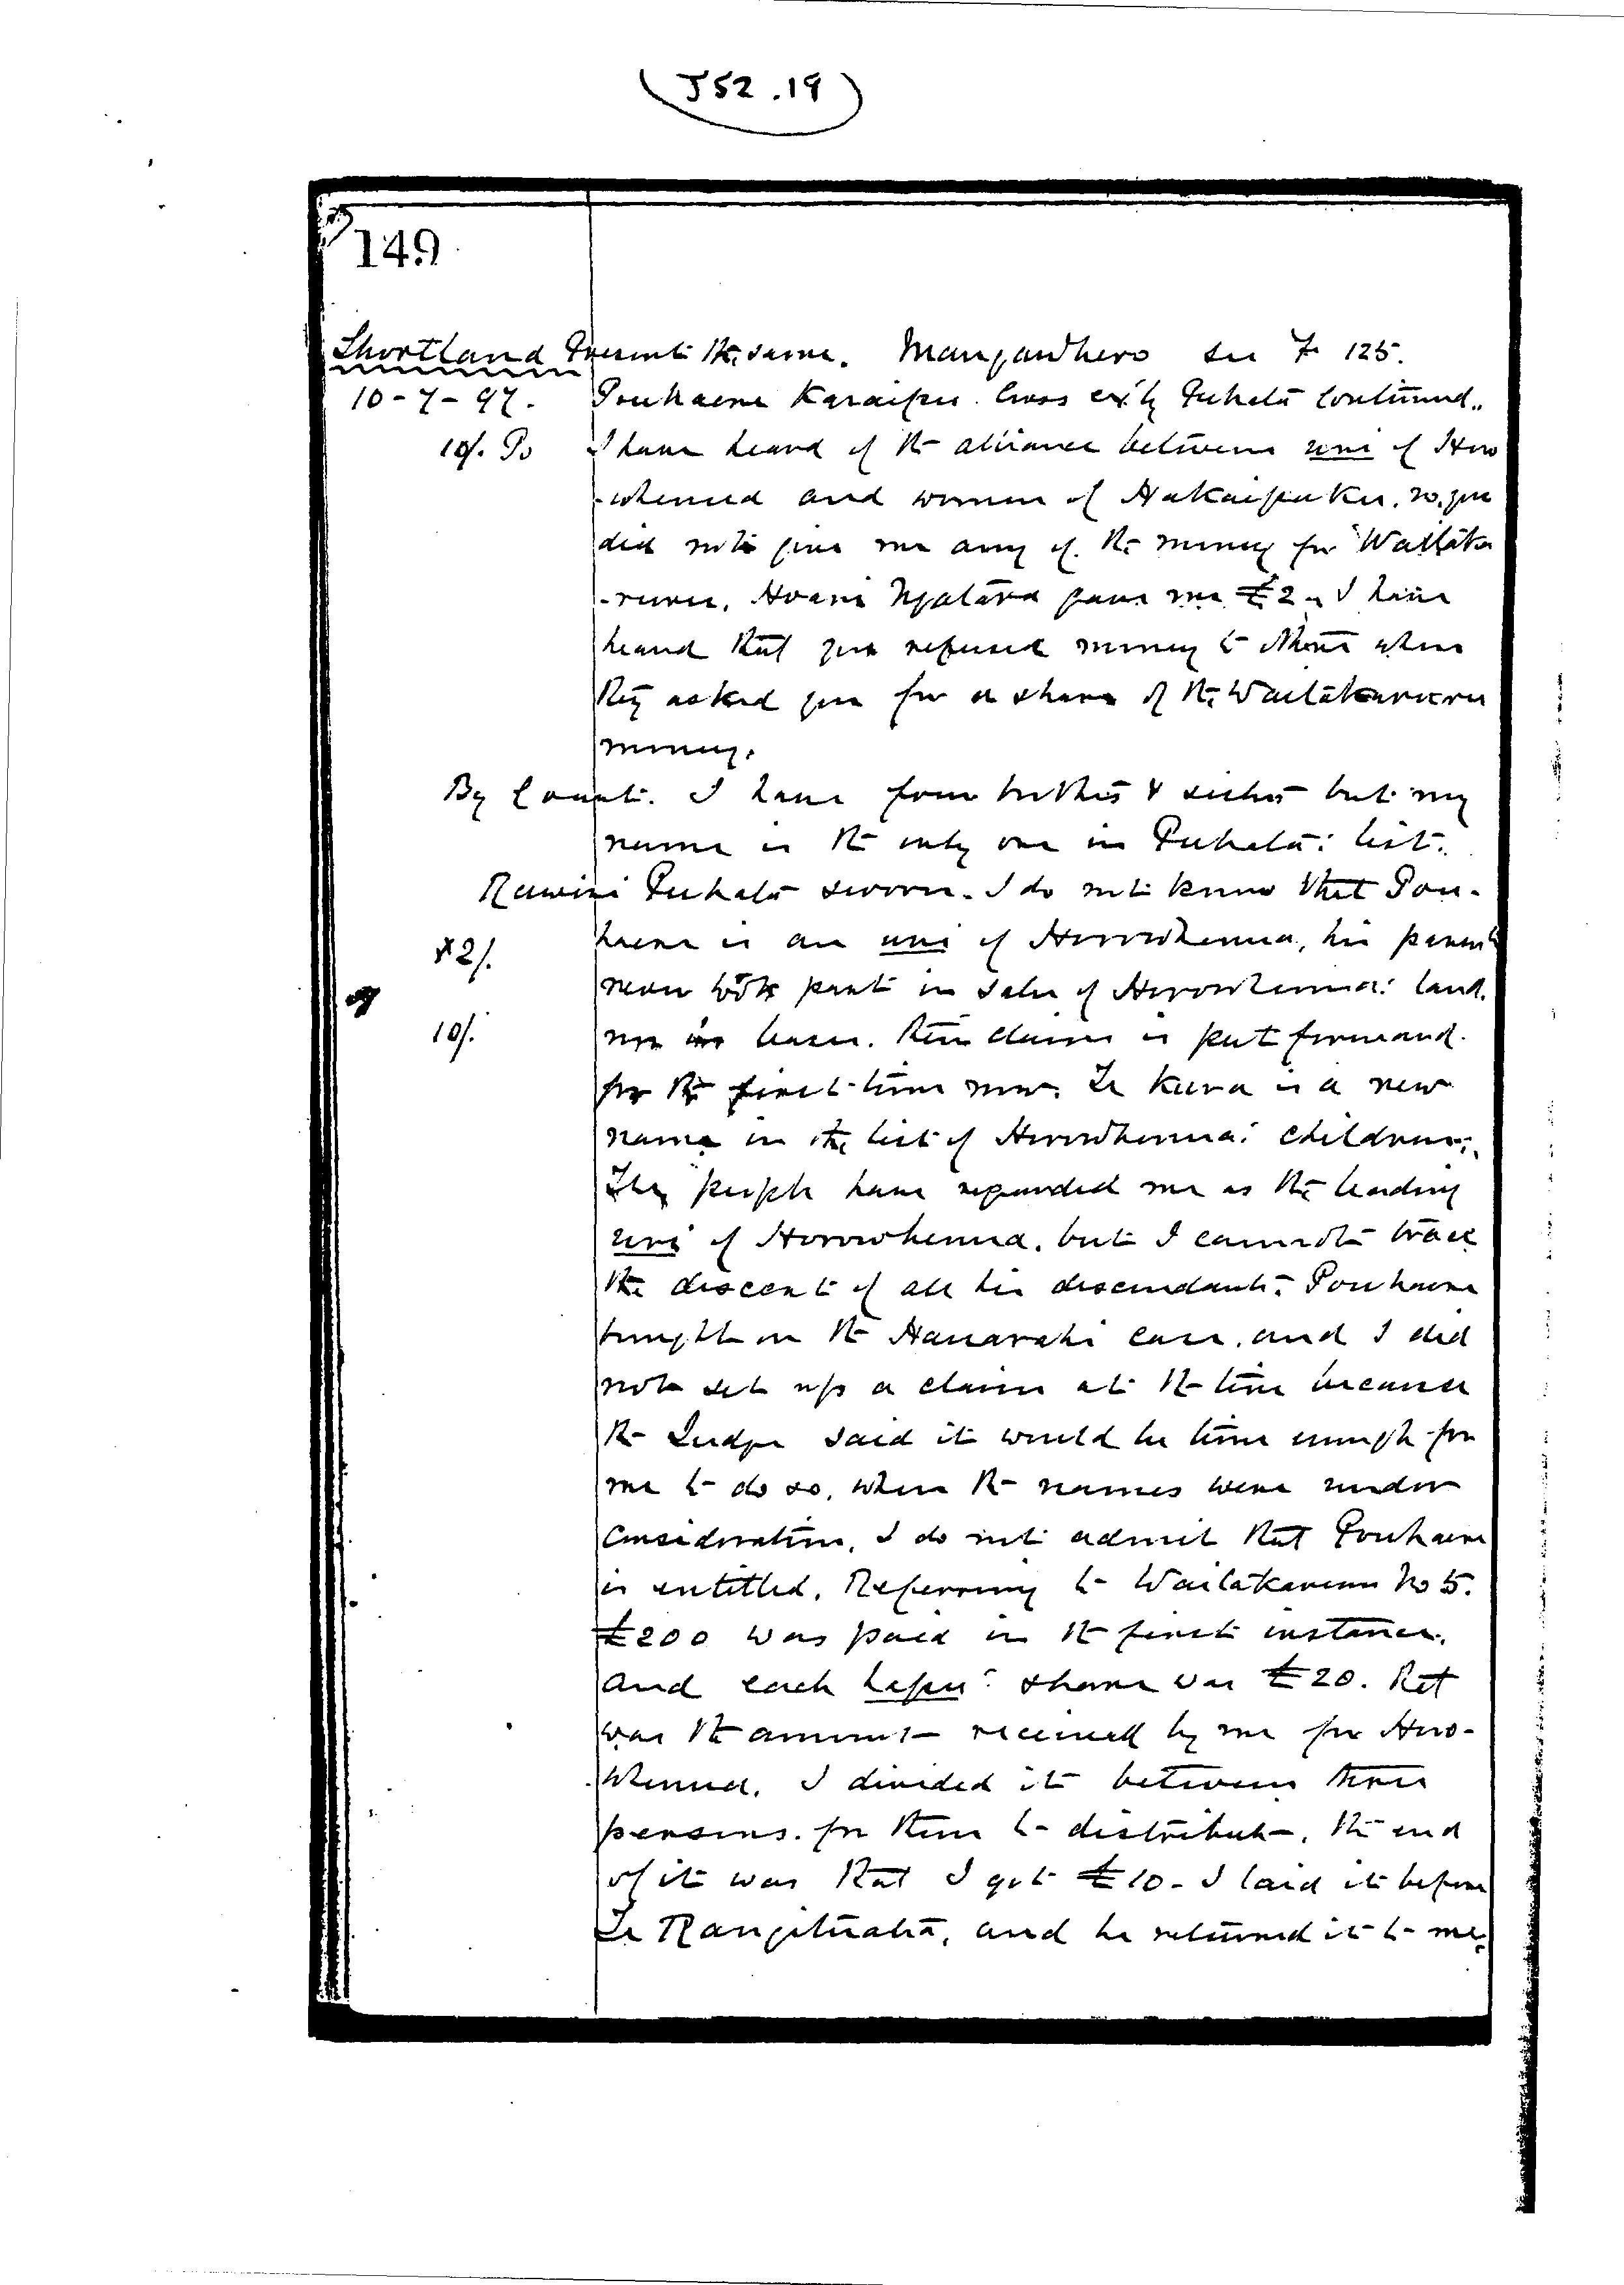 (J52.19)
149
Shortland Present the same. Mangawhero see Fo 125.
10-7-97. Pouhaene Karaipu. Cross exd by Pukeha continued..
10/. Po I have heard of the alliance between uri of Horo
-whenua and women of Hakaipuku. no. you
did not give me any of the money for Waitaka
-ruru. Hoani gave me £2. I have
heard that you refused money to others when
they asked you for a share of the Waitakaruru
money.
By Court. I have four brothers & sisters but my
name is the only one in list.
Rawiri sworn. I do not know that Pou-
£2/. haene is an uri of Horowhenua, his parents
never took part in sales of Horowhenua's land.
10/. nor in leases. Their claim is put forward.
for the first time now. Te Kura is a new
name in the list of Horowhenua's children.
The people have regarded me as the leading
uri of Horowhenua. but I cannot trace
the descent of all his descendants. Pouhaene
brought on the Hauarahi case. and I did
not set up a claim at the time because
the Judge said it would be time enough for
me to do so, when the names were under
consideration. I do not admit that Pouhaene
is entitled. Referring to Waitakaruru No 5.
£200 was paid in the first instance.
and each hapu's share was £20. that
was the amount received by me for Horo-
whenua. I divided it between three
persons. for them to distribute. the end
of it was that I got £10 - I laid it before
Te and he returned it to me.